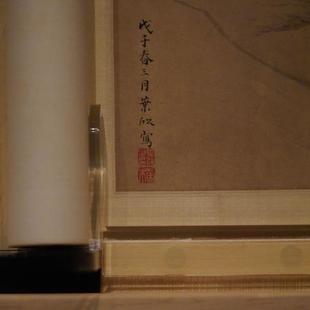 戊子春三月葉欣寫